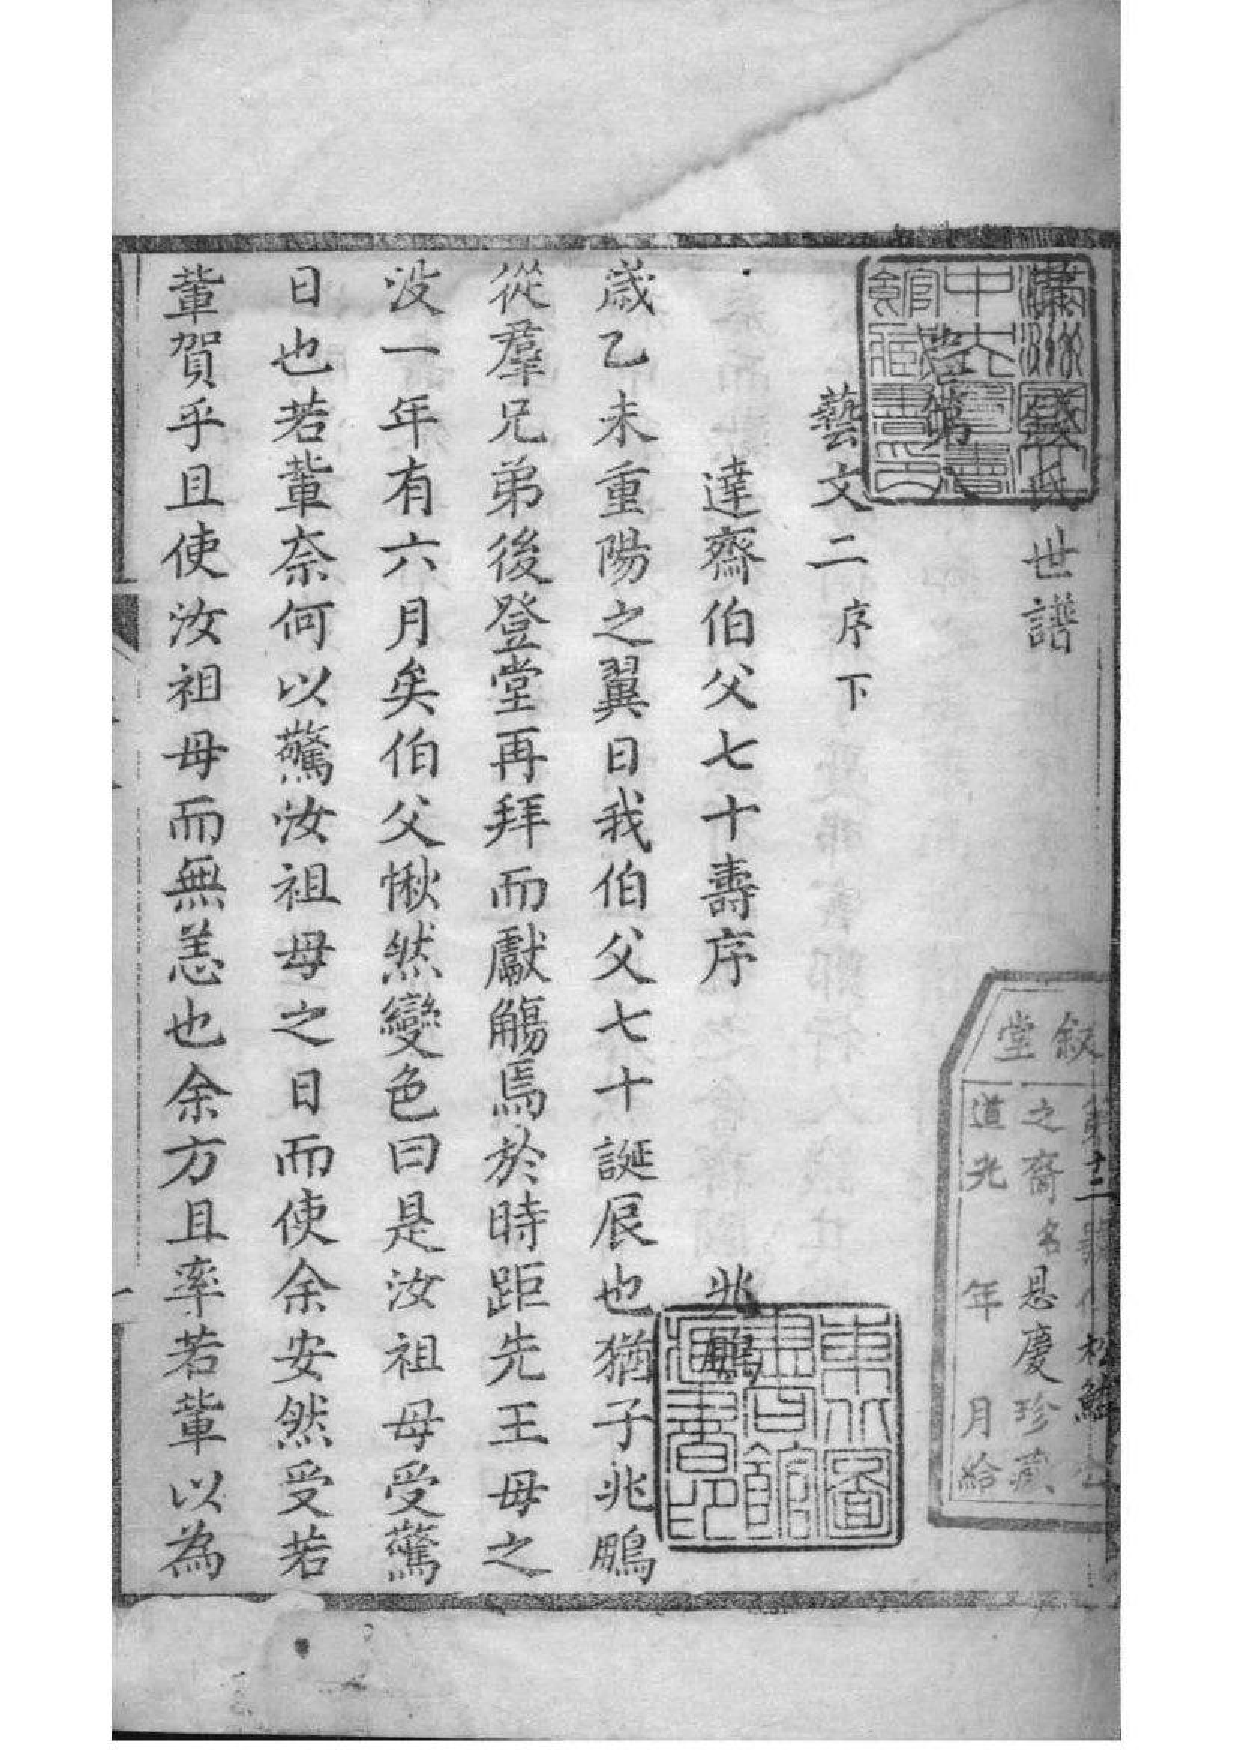 錢氏世譜
卷第八
藝文二 序下
達齋伯父七十壽序 兆鵬
歲乙未重陽之翼日我伯父七十誕辰也猶子兆鵬
從羣兄弟後登堂再拜而獻觴焉於時距先王母之
沒一年有六月矣伯父愀然變色曰是汝祖母受驚
日也若輩奈何以驚汝祖母之日而使余安然受若
輩賀乎且使汝祖母而無恙也余方且率若輩以為
敘堂
之裔名恳慶珍藏
道光 年 月給
東北圖書館藏書印